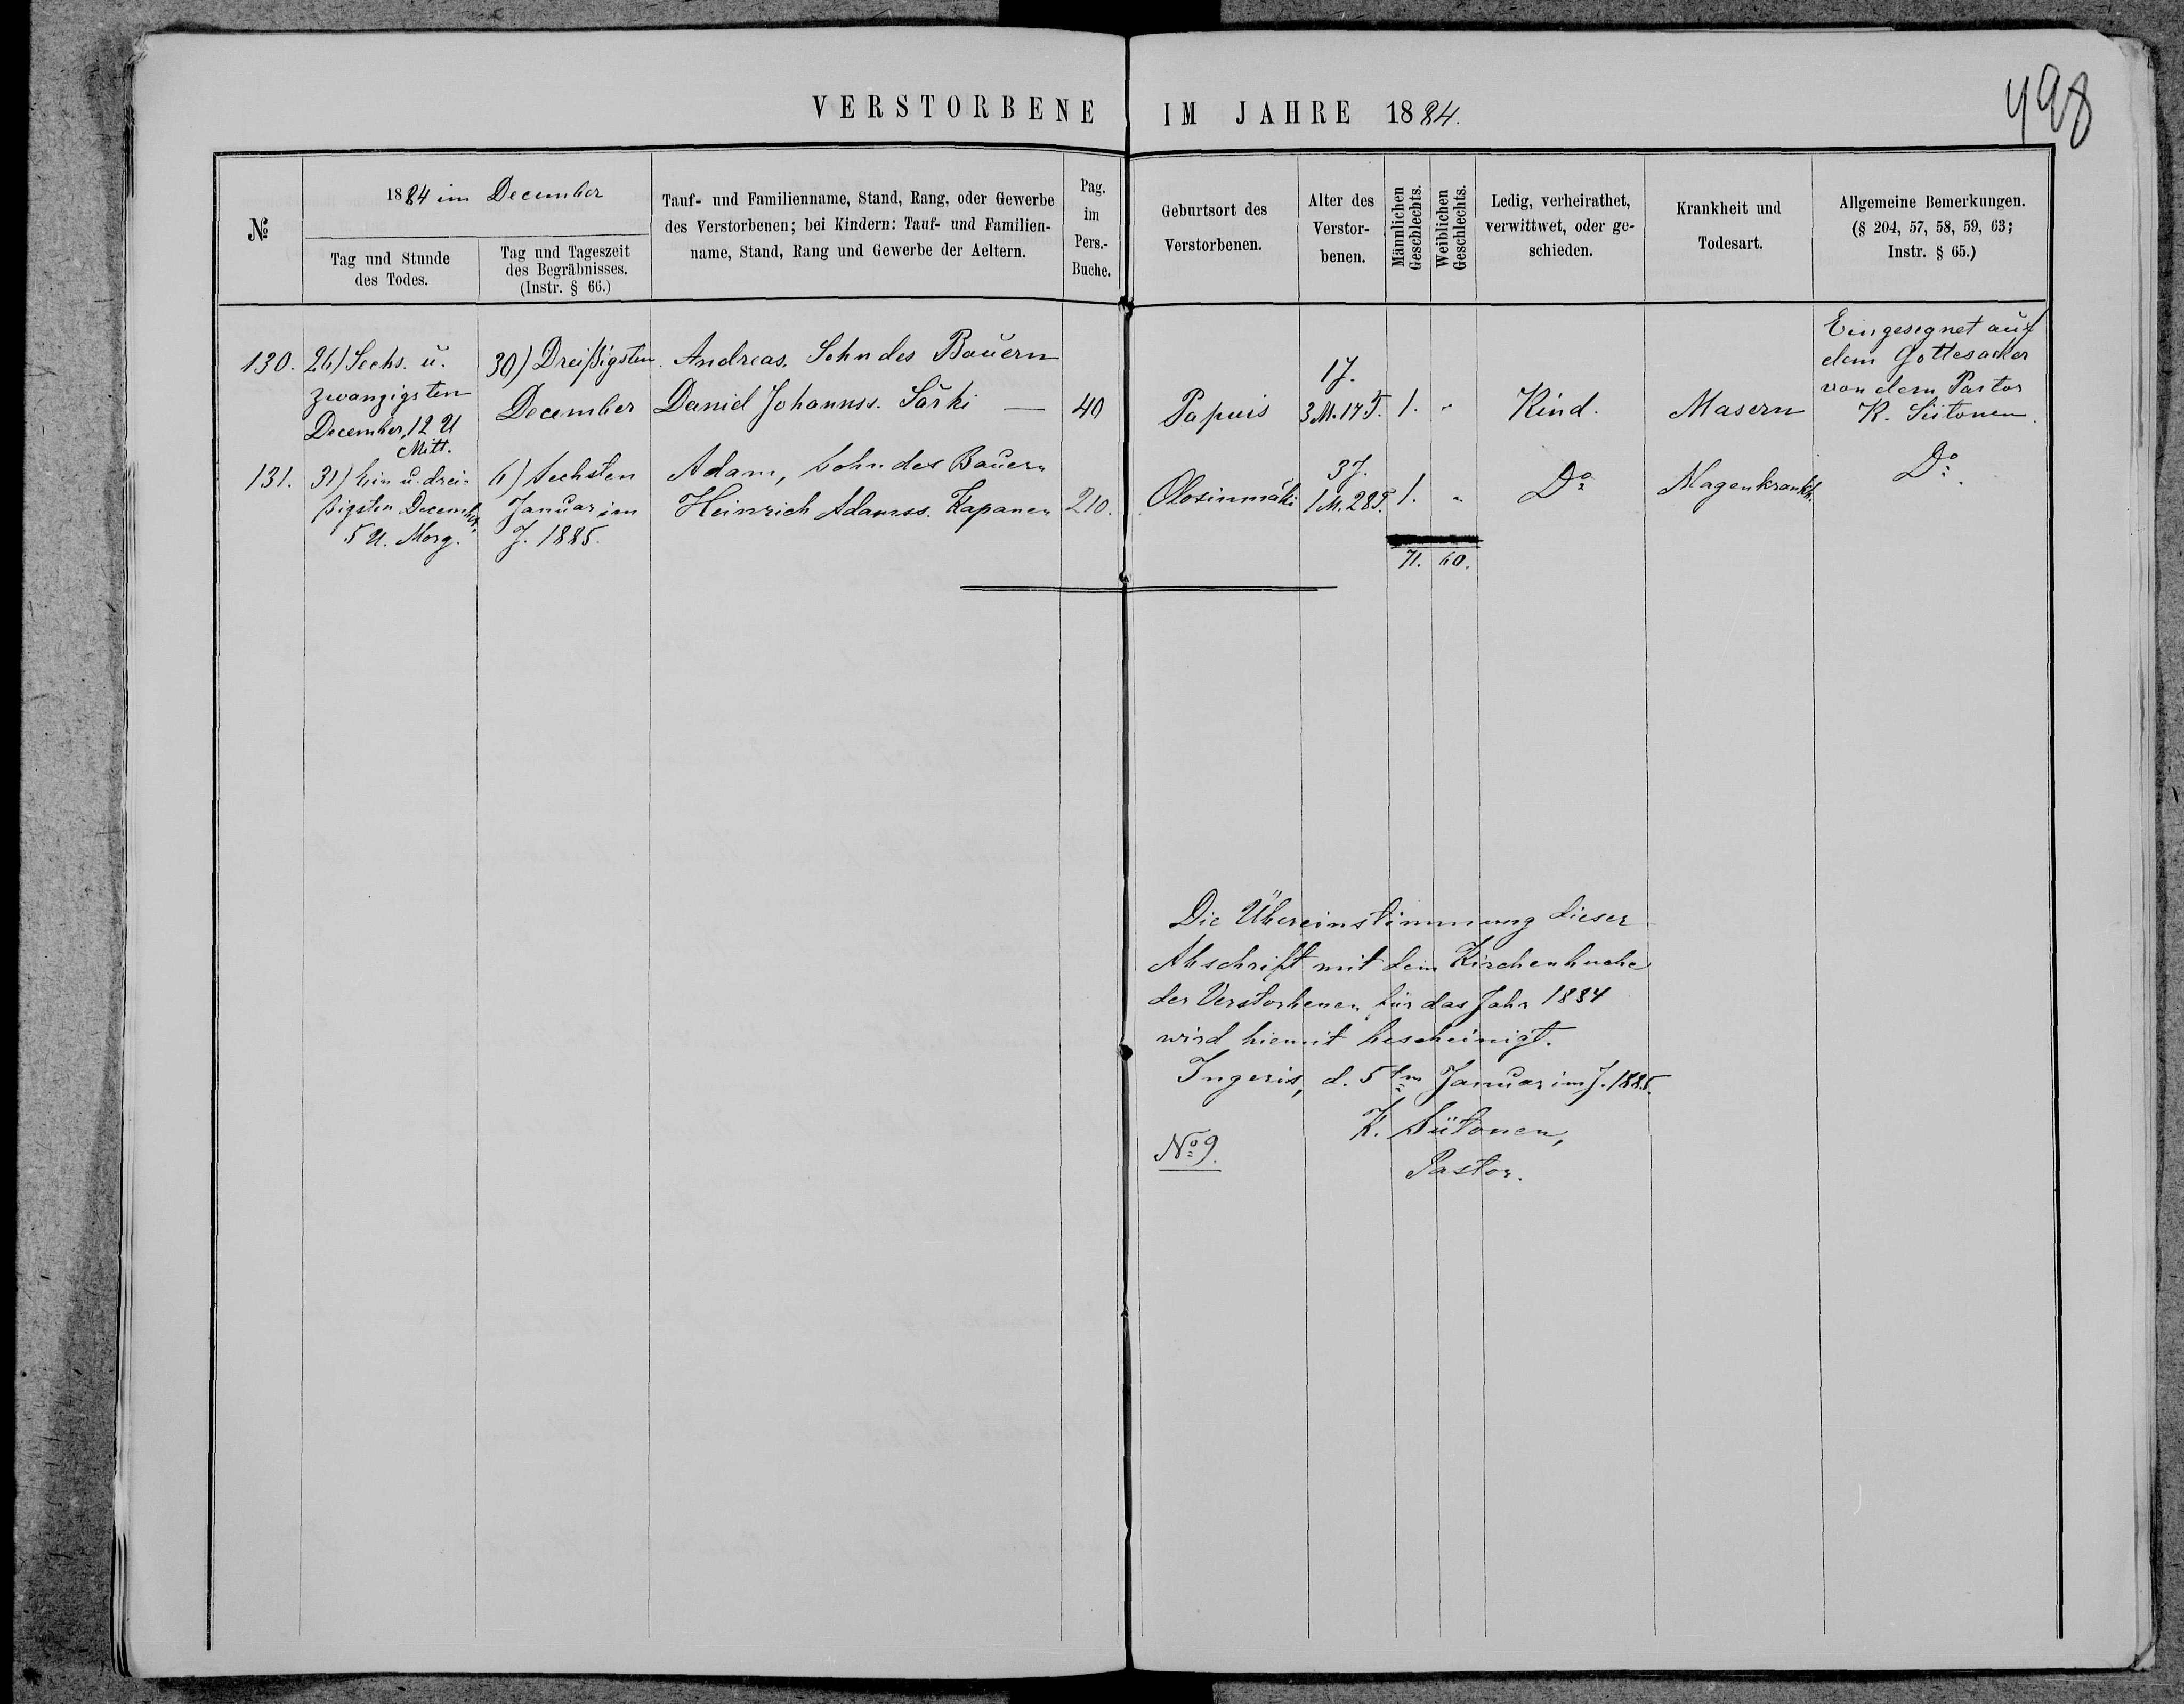 VERSTORBENE IM JAHRE 1884.
498
№
1884 im December
Tag und Stunde
des Todes.
Tag und Tageszeit
des Begräbnisses.
(Instr. § 66.)
Tauf- und Familienname, Stand, Rang, oder Gewerbe
des Verstorbenen; bei Kindern: Tauf- und Familien-
name, Stand, Rang und Gewerbe der Aeltern.
Pag.
im
Pers.-
Buche.
Geburtsort des
Verstorbenen.
Alter des
Verstor-
benen.
Männlichen
Geschlechts.
Weiblichen
Geschlechts.
Ledig, verheirathet,
verwittwet, oder ge-
schieden.
Krankheit und
Todesart.
Allgemeine Bemerkungen.
(§ 204, 57, 58, 59, 63;
Instr. § 65.)
130.
26) Sechs. u.
zwanzigsten
December, 12 U
Mitt.
30) Dreißigsten
December
Andreas, Sohn des Bauern
Daniel Johannss. Särki —
40
Papuis
1 J.
3 M. 17 T.
1.
"
Kind.
Masern
Eingesegnet auf
dem Gottesacker
von dem Pastor
K. Siitonen.
131.
31) Ein u. drei-
ßigsten December,
5 U. Morg.
6) Sechsten
Januar im
J. 1885.
Adam, Sohn des Bauern
Heinrich Adamss. Kapanen
210.
Olosinmäki
3 J.
1 M. 28 T.
1.
"
Do
Magenkrankh.
Do.
71. 60.
Die Übereinstimmung dieser
Abschrift mit dem Kirchenbuche
der Verstorbenen für das Jahr 1884
wird hiemit bescheinigt.
Ingeris, d. 5ten Januar im J. 1885.
K. Siitonen,
Pastor.
No 9.